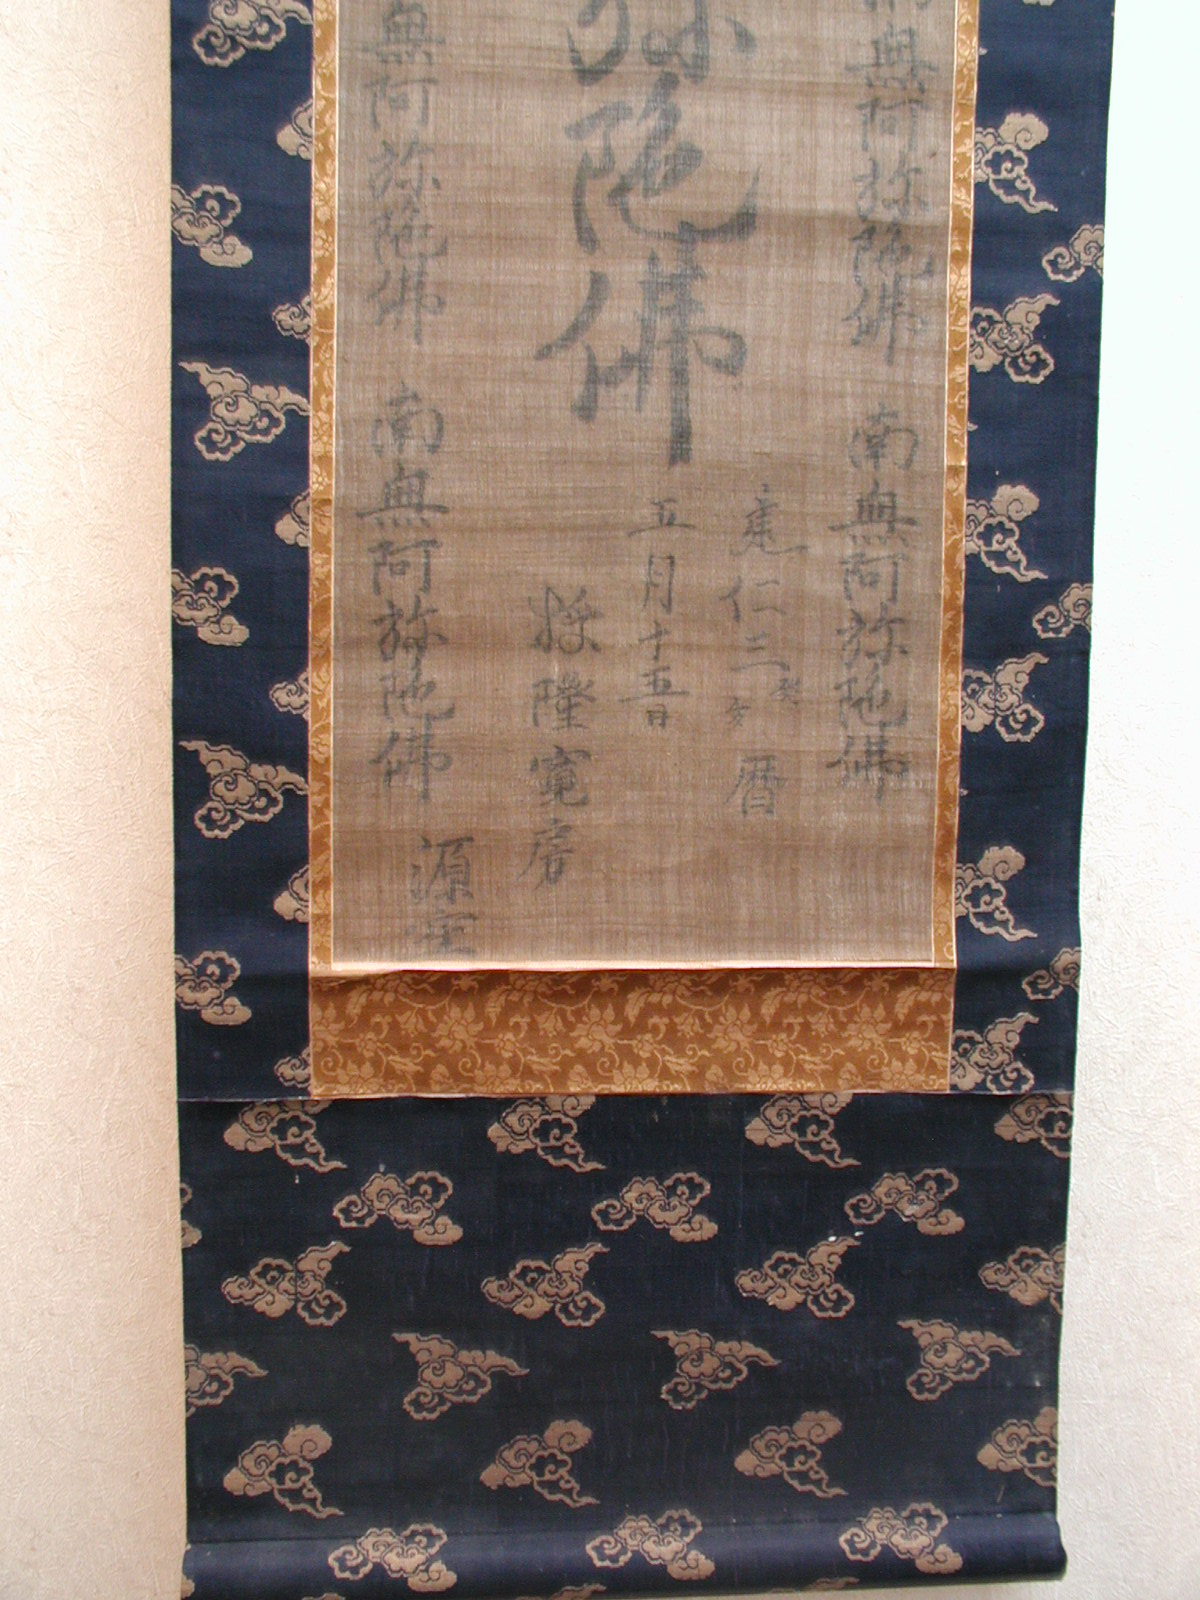 無阿弥陀佛 南無阿弥陀佛
弥陀佛
建仁三癸亥暦
五月十五日
授隆寛房
無阿弥陀佛 南無阿弥陀佛
源空